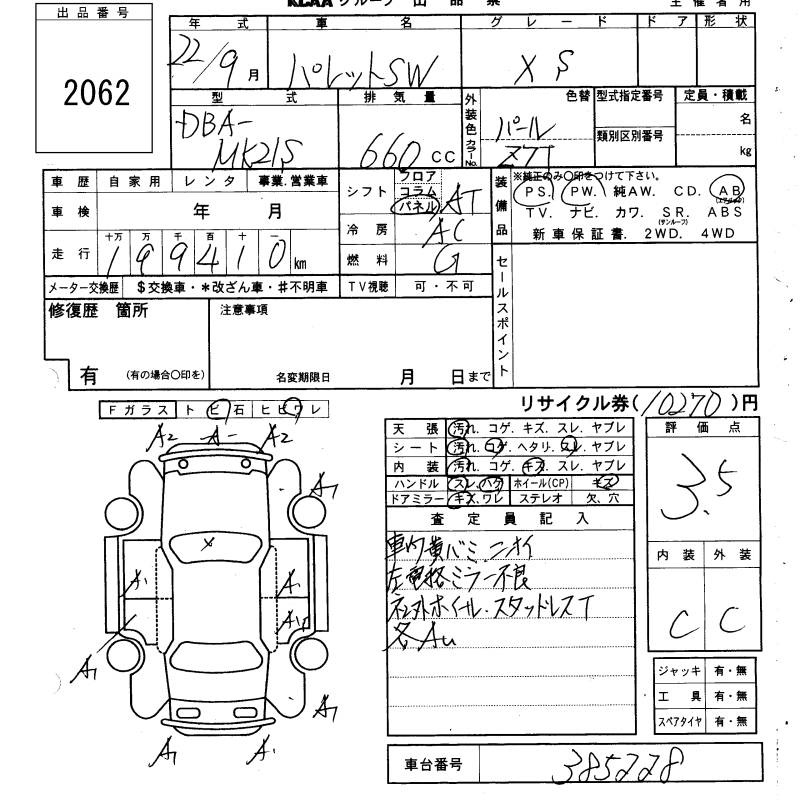 KCAA グループ 出品票 主催者用
出品番号
2062
年式 車名 グレード ドア 形状
22/9月 パレットSW XS
型式 排気量 外装色 カラーNo. 色替 型式指定番号 定員・積載
DBA-MK21S 660cc パール Z7T 類別区別番号 名 kg
車歴 自家用 レンタ 事業.営業車
車検 年 月
走行 十万 万 千 百 十 一
199410km
メーター交換歴 $交換車・*改ざん車・#不明車
シフト フロア コラム パネル AT
冷房 AC
燃料 G
TV視聴 可・不可
装備品 ※純正のみ〇印をつけて下さい。
PS. PW. 純AW. CD. AB(エアバック)
TV. ナビ. カワ. SR.(サンルーフ) ABS
新車保証書. 2WD. 4WD
セールスポイント
修復歴 箇所
有 (有の場合〇印を)
注意事項
名変期限日 月 日まで
リサイクル券(10270)円
Fガラス トビ石 ヒビワレ
A2 A- A2
A1
×
A1 A1
A1 A1
A1 A1
A1 A1
天張 汚れ. コゲ. キズ. スレ. ヤブレ
シート 汚れ. コゲ. ヘタリ. スレ. ヤブレ
内装 汚れ. コゲ. キズ. スレ. ヤブレ
ハンドル スレ. ハゲ ホイール(CP) キズ
ドアミラー キズ. ワレ ステレオ 欠. 穴
査定員記入
車内黄バミ. ニオイ
左電格ミラー不良
社外ホイール. スタッドレスT
各Au
評価点
3.5
内装 外装
C C
ジャッキ 有・無
工具 有・無
スペアタイヤ 有・無
車台番号 385228